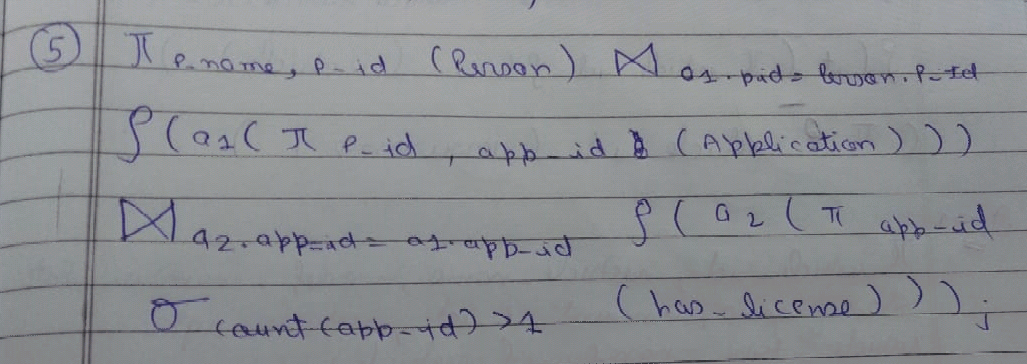 ⑤ π p_name, p_id (Person) ⋈ a1.pid = Person.P_Id
ρ(a1(π P_id, app_id (Application)))
⋈ a2.app_id = a1.app_id ρ(a2(π app_id
σ count(app_id)>1 (has_license)));